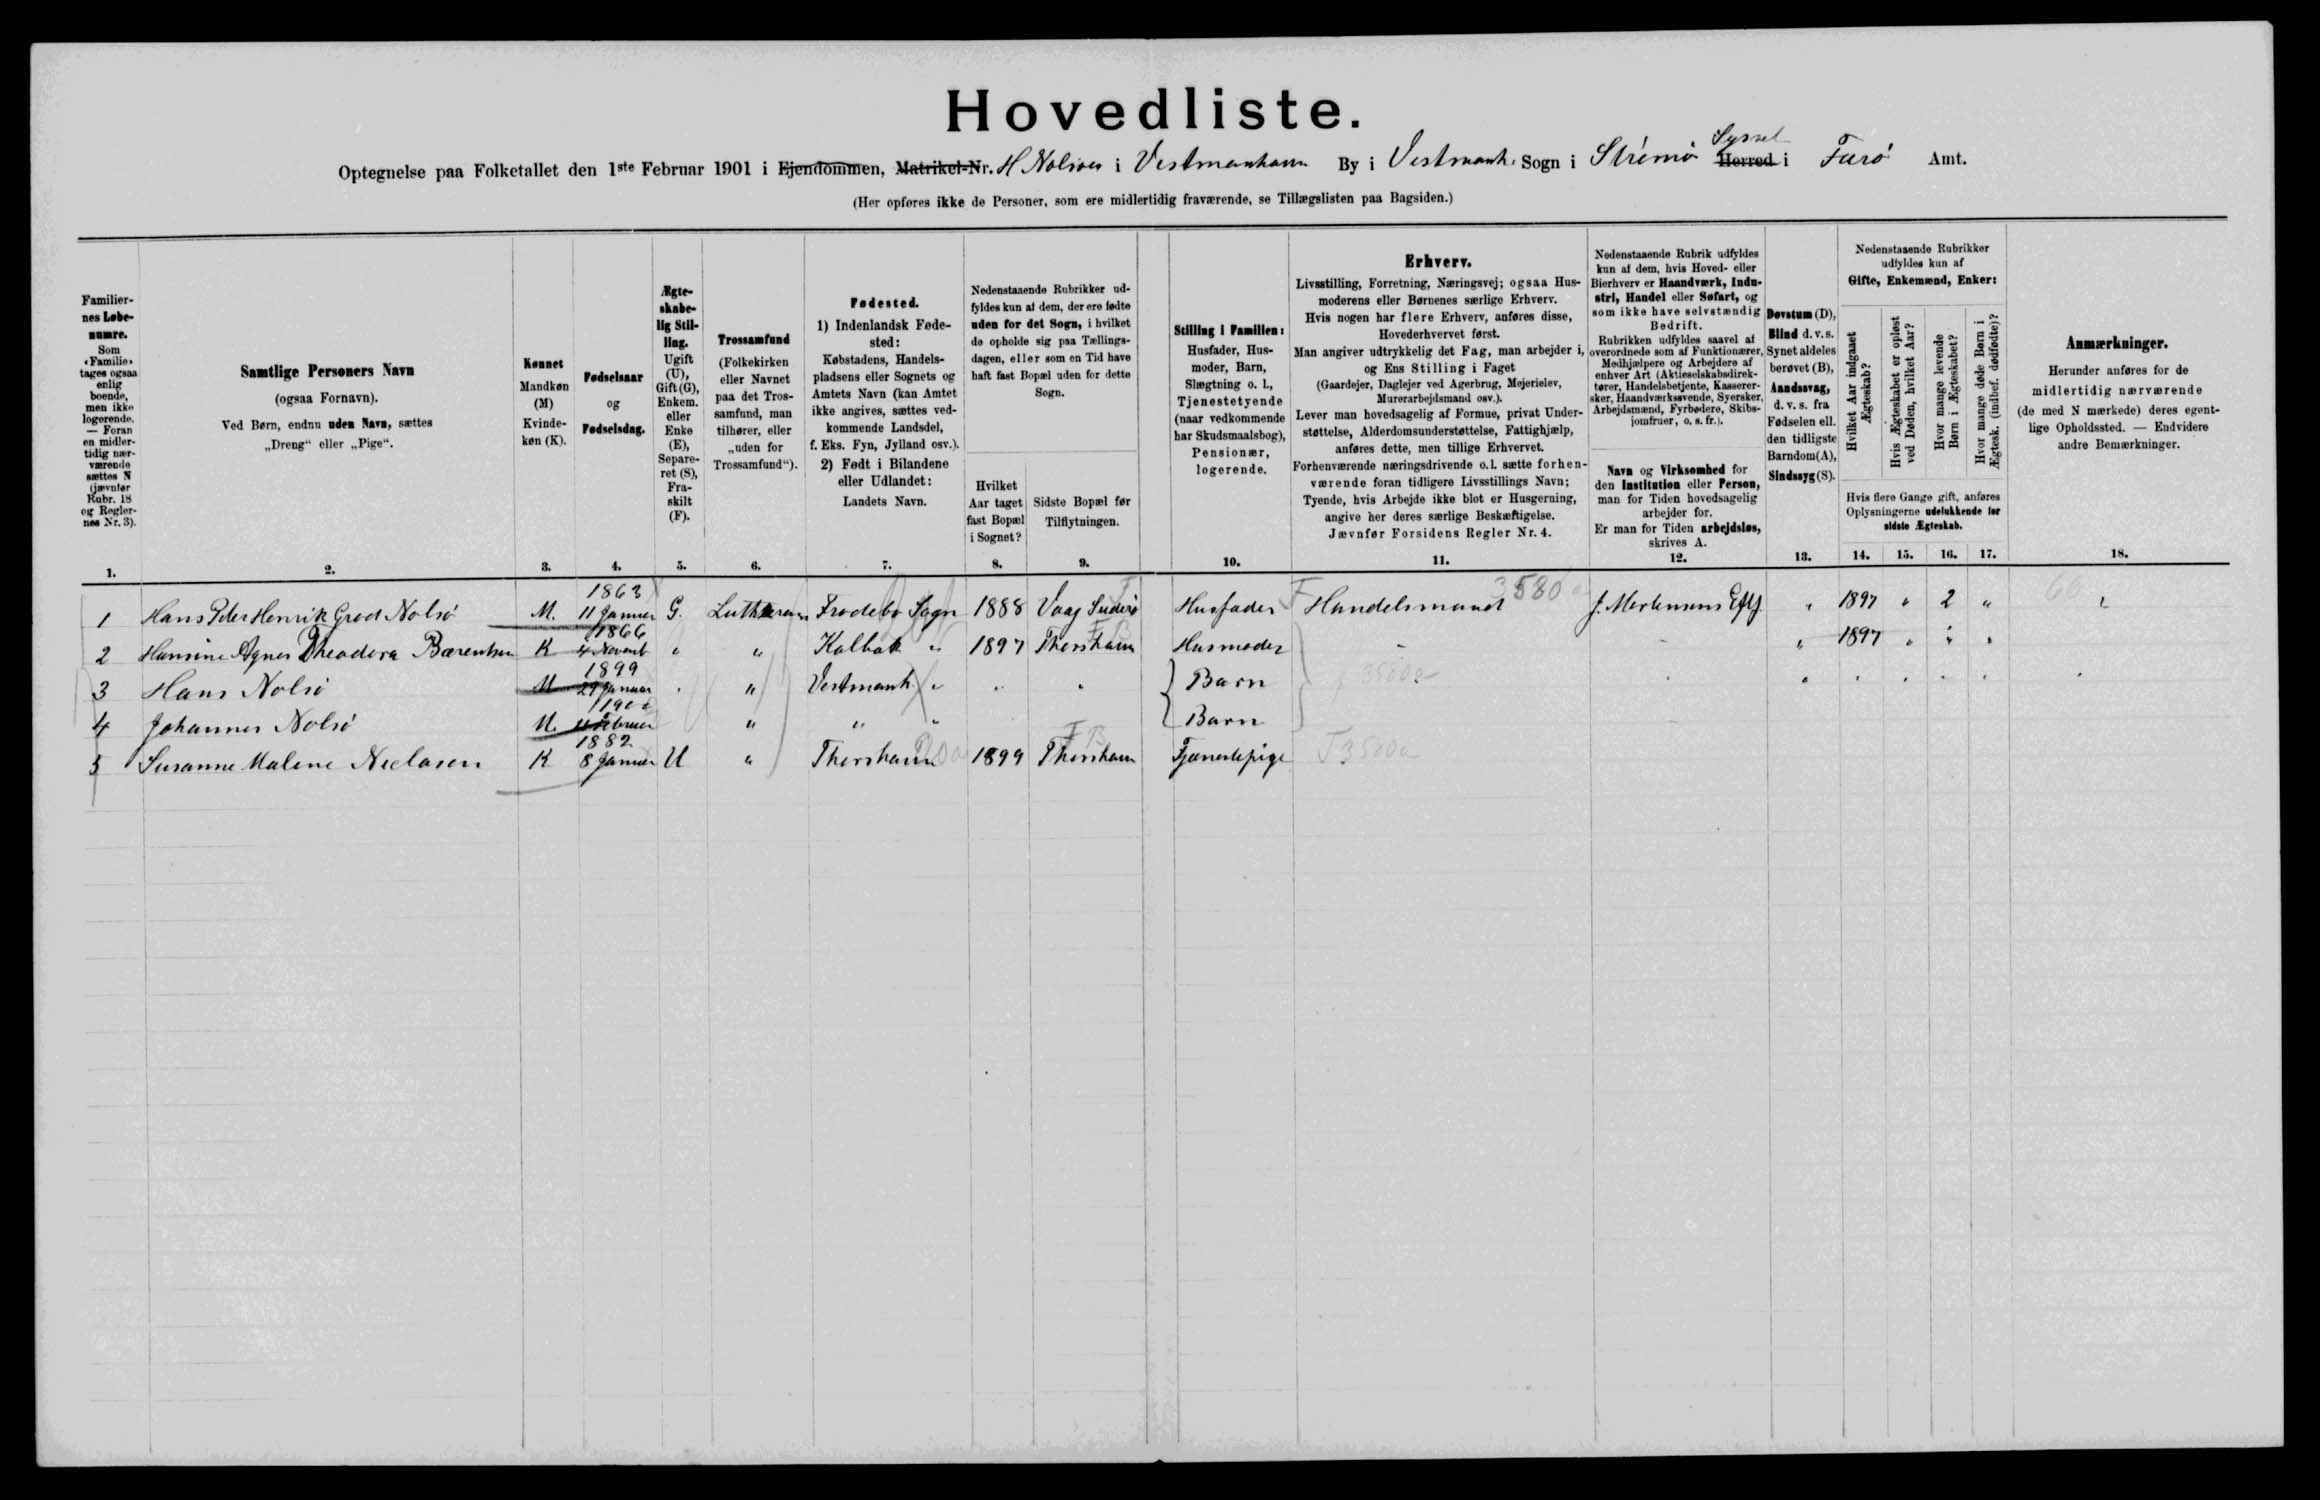 Hovedliste.
Optegnelse paa Folketallet den 1ste Februar 1901 i Ejendommen, Matrikel-Nr. H Nolsøes i Vestmanhavn By i Vestmanh. Sogn i Strømø Syssel Herred i Færø Amt.
(Her opføres ikke de Personer, som ere midlertidig fraværende, se Tillægslisten paa Bagsiden.)
Familier-
nes Løbe-
numre.
Som
«Familie»
tages ogsaa
enlig
boende,
men ikke
logerende.
— Foran
en midler-
tidig nær-
værende
sættes N
(jævnfør
Rubr. 18
og Regler-
nes Nr. 3).
1.
Samtlige Personers Navn
(ogsaa Fornavn).
Ved Børn, endnu uden Navn, sættes
„Dreng“ eller „Pige“.
2.
Kønnet
Mandkøn
(M)
Kvinde-
køn (K).
3.
Fødselsaar
og
Fødselsdag.
4.
Ægte-
skabe-
lig Stil-
ling.
Ugift
(U),
Gift (G),
Enkem.
eller
Enke
(E),
Separe-
ret (S),
Fra-
skilt
(F).
5.
Trossamfund
(Folkekirken
eller Navnet
paa det Tros-
samfund, man
tilhører, eller
„uden for
Trossamfund“).
6.
Fødested.
1) Indenlandsk Føde-
sted:
Købstadens, Handels-
pladsens eller Sognets og
Amtets Navn (kan Amtet
ikke angives, sættes ved-
kommende Landsdel,
f. Eks. Fyn, Jylland osv.).
2) Født i Bilandene
eller Udlandet:
Landets Navn.
7.
Nedenstaaende Rubrikker ud-
fyldes kun af dem, der ere fødte
uden for det Sogn, i hvilket
de opholde sig paa Tællings-
dagen, eller som en Tid have
haft fast Bopæl uden for dette
Sogn.
Hvilket
Aar taget
fast Bopæl
i Sognet?
8.
Sidste Bopæl før
Tilflytningen.
9.
Stilling i Familien:
Husfader, Hus-
moder, Barn,
Slægtning o. l.,
Tjenestetyende
(naar vedkommende
har Skudsmaalsbog),
Pensionær,
logerende.
10.
Erhverv.
Livsstilling, Forretning, Næringsvej; ogsaa Hus-
moderens eller Børnenes særlige Erhverv.
Hvis nogen har flere Erhverv, anføres disse,
Hovederhvervet først.
Man angiver udtrykkelig det Fag, man arbejder i,
og Ens Stilling i Faget
(Gaardejer, Daglejer ved Agerbrug, Mejerielev,
Murerarbejdsmand osv.).
Lever man hovedsagelig af Formue, privat Under-
støttelse, Alderdomsunderstøttelse, Fattighjælp,
anføres dette, men tillige Erhvervet.
Forhenværende næringsdrivende o. l. sætte forhen-
værende foran tidligere Livsstillings Navn;
Tyende, hvis Arbejde ikke blot er Husgerning,
angive her deres særlige Beskæftigelse.
Jævnfør Forsidens Regler Nr. 4.
11.
Nedenstaaende Rubrik udfyldes
kun af dem, hvis Hoved- eller
Bierhverv er Haandværk, Indu-
stri, Handel eller Søfart, og
som ikke have selvstændig
Bedrift.
Rubrikken udfyldes saavel af
overordnede som af Funktionærer,
Medhjælpere og Arbejdere af
enhver Art (Aktieselskabsdirek-
tører, Handelsbetjente, Kasserer-
sker, Haandværkssvende, Syersker,
Arbejdsmænd, Fyrbødere, Skibs-
jomfruer, o. s. fr.).
Navn og Virksomhed for
den Institution eller Person,
man for Tiden hovedsagelig
arbejder for.
Er man for Tiden arbejdsløs,
skrives A.
12.
Døvstum (D),
Blind d. v. s.
Synet aldeles
berøvet (B),
Aandssvag,
d. v. s. fra
Fødselen ell.
den tidligste
Barndom (A),
Sindssyg (S).
13.
Nedenstaaende Rubrikker
udfyldes kun af
Gifte, Enkemænd, Enker:
Hvilket Aar indgaaet
Ægteskab?
Hvis Ægteskabet er opløst
ved Døden, hvilket Aar?
Hvor mange levende
Børn i Ægteskabet?
Hvor mange døde Børn i
Ægtesk. (indbef. dødfødte)?
Hvis flere Gange gift, anføres
Oplysningerne udelukkende for
sidste Ægteskab.
14. 15. 16. 17.
Anmærkninger.
Herunder anføres for de
midlertidig nærværende
(de med N mærkede) deres egent-
lige Opholdssted. — Endvidere
andre Bemærkninger.
18.
1 Hans Peter Henrik Grod Nolsø M. 1863 11 Januar G. Lutheran Frodebo Sogn 1888 Vaag Suderø Husfader F Handelsmand 3580 J. Mortensens Eftf " 1897 " 2 "
2 Hansine Agnes Theodora Bærentsen K 1866 4 Novemb " " Kalbak " 1897 Thorshavn Husmoder - - " 1897 " " "
3 Hans Nolsø M 1899 29 Januar " " Vestmanh. " " " Barn
4 Johannes Nolsø M. Februar " " " Barn
5 Susanne Malene Nielasen K 1882 8 Januar U " Thorshavn 1899 Thorshavn Tjenestepige